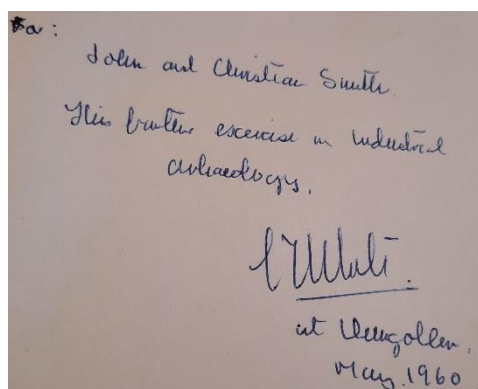 For:
John and Christian Smith
This further exercise in industrial
archaeology.
L T C Rolt.
at Llangollen.
May, 1960